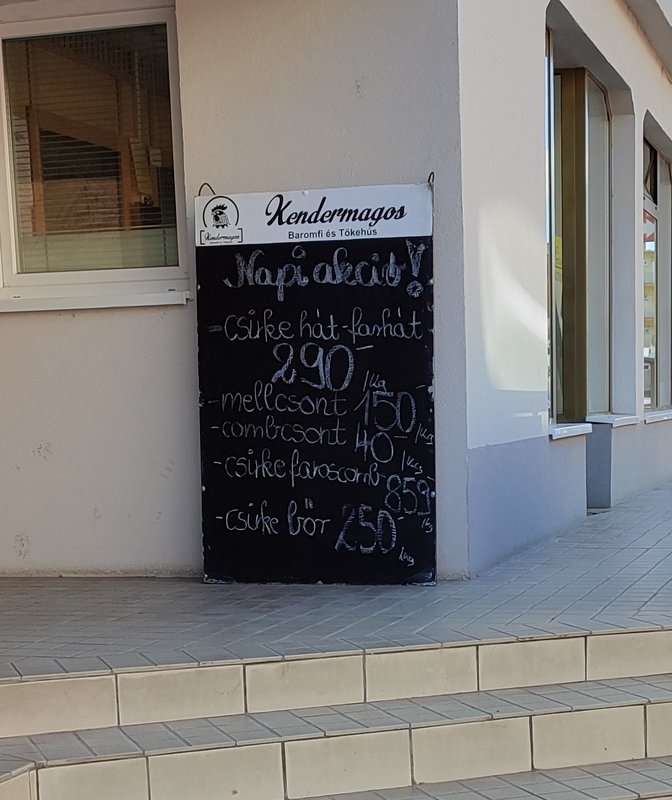 Kendermagos
Kendermagos
Baromfi és Tőkehús
Napi akció!
- csirke hát-farhát
290 /kg
- mellcsont 150 /kg
- combcsont 40 /kg
- csirke faroscomb 859 /kg
- csirke bőr 250 /kg